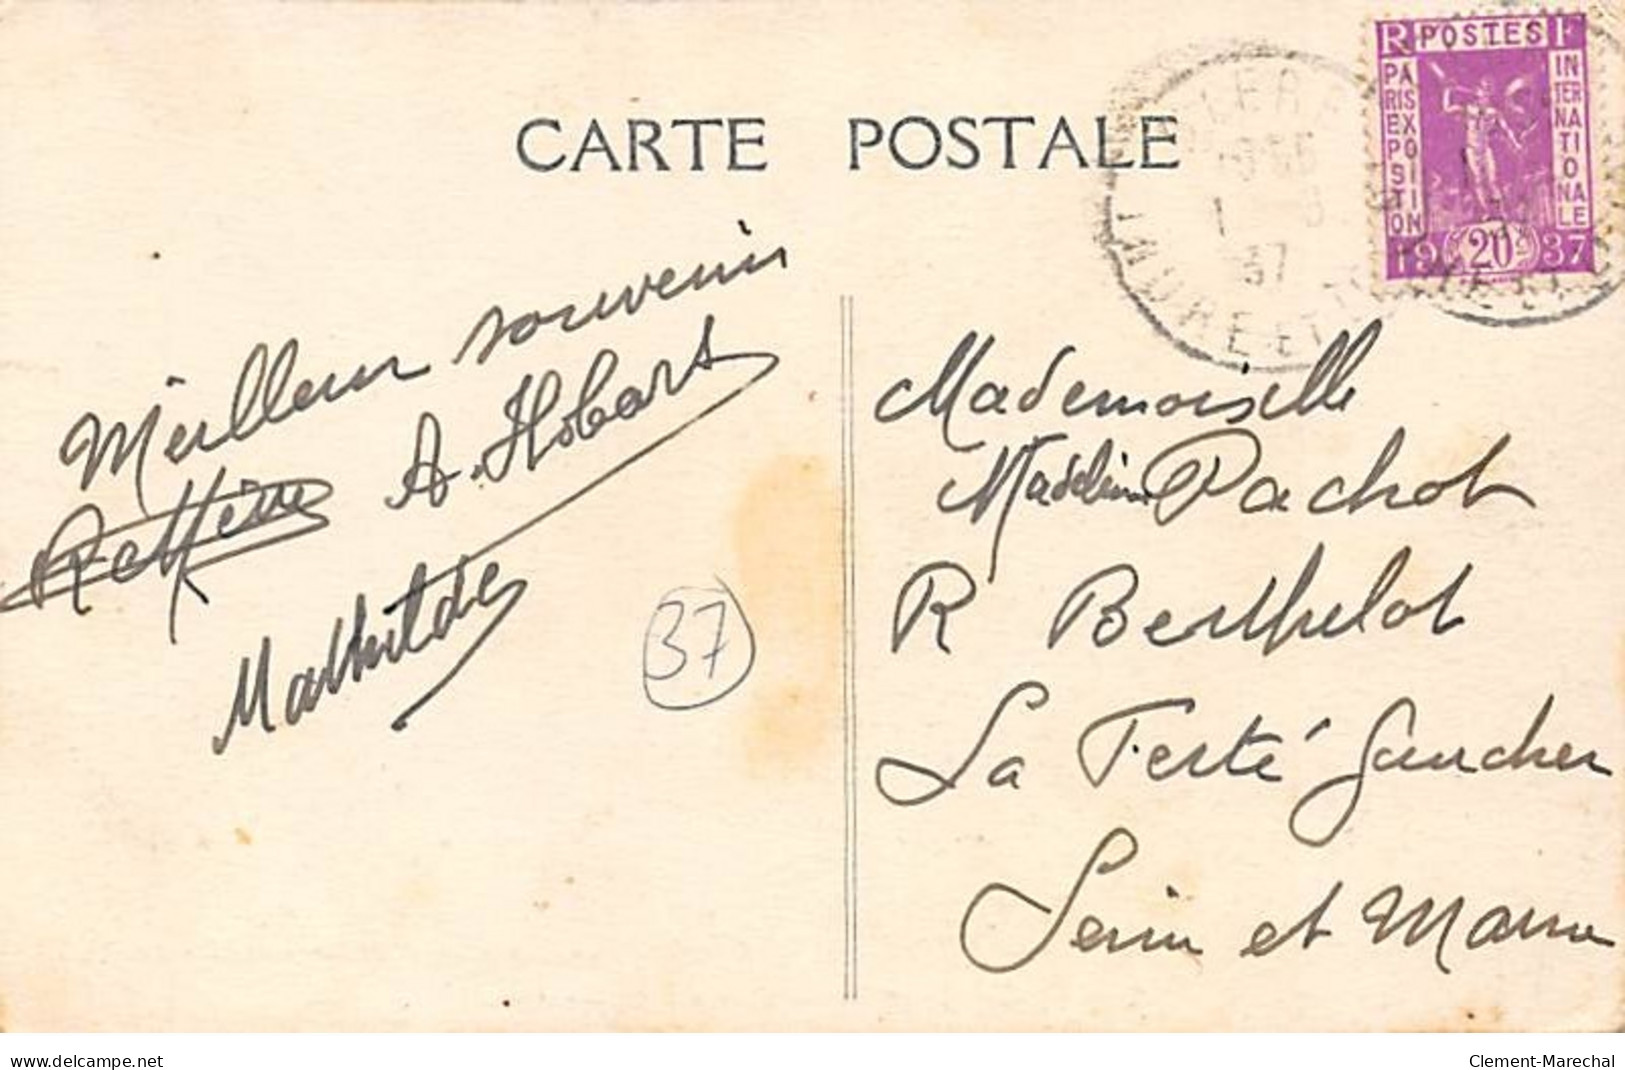 CARTE POSTALE
R POSTES F
PARIS EXPOSITION
INTERNATIONALE
19 20c 37
37
INDRE ET
Meilleur souvenir
A. Hobart
Mathilde
37
Mademoiselle
Madeleine Pachot
R Berthelot
La Ferté Gaucher
Seine et Marne
www.delcampe.net
Clement-Marechal